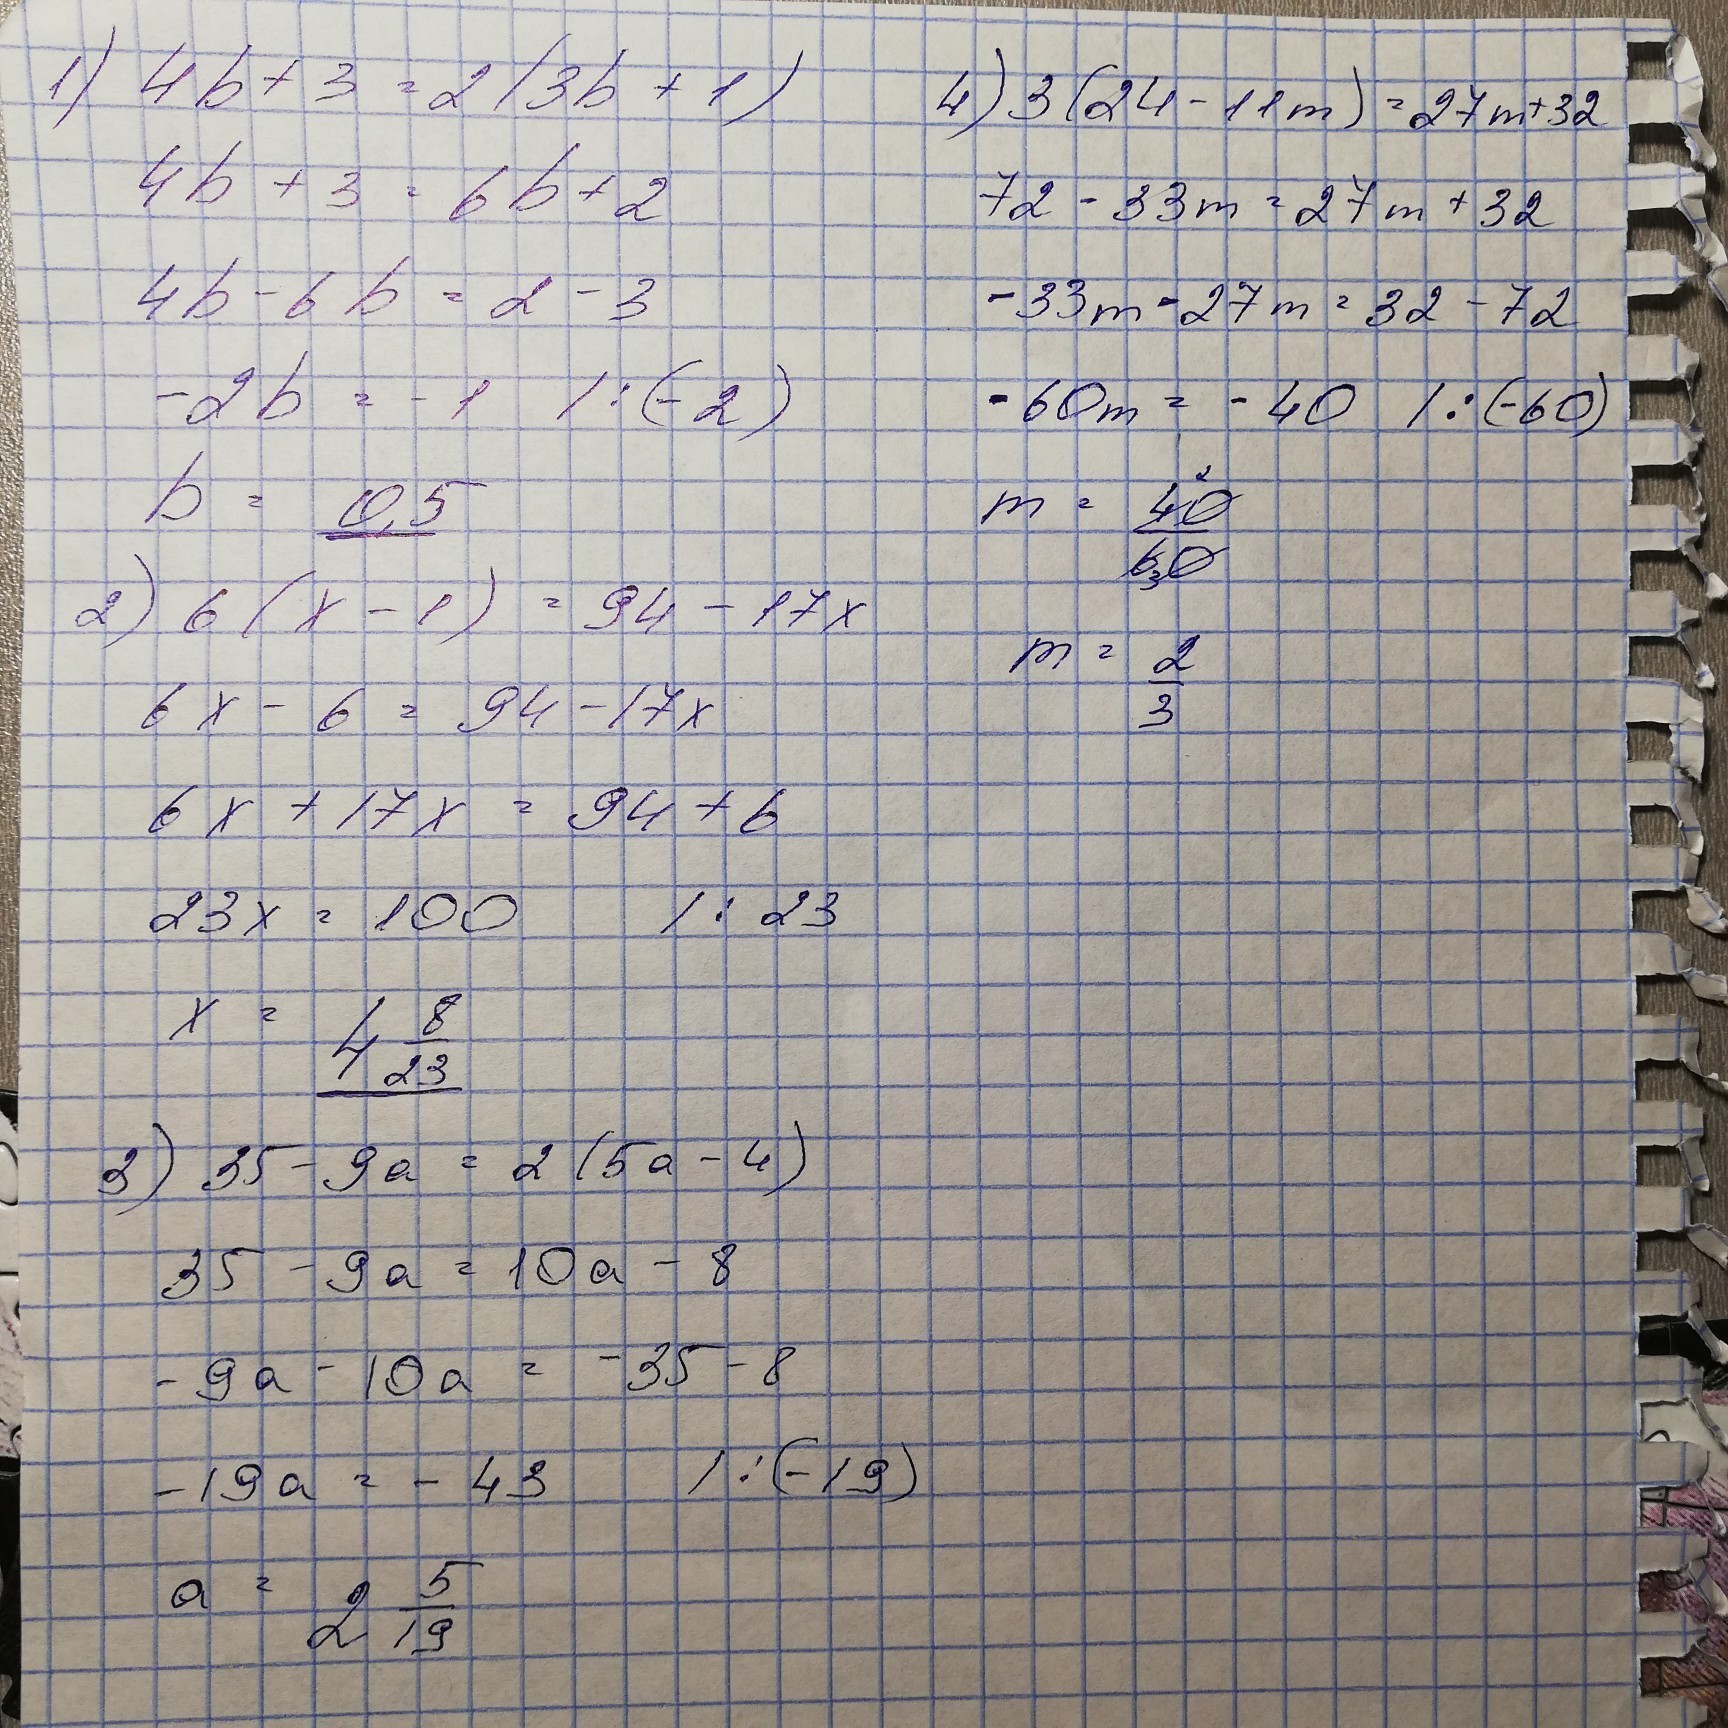 1) 4b + 3 = 2(3b + 1)
4b + 3 = 6b + 2
4b - 6b = 2 - 3
-2b = -1 /:(-2)
b = 0,5
2) 6(x - 1) = 94 - 17x
6x - 6 = 94 - 17x
6x + 17x = 94 + 6
23x = 100 /: 23
x = 4 8/23
3) 35 - 9a = 2(5a - 4)
35 - 9a = 10a - 8
-9a - 10a = -35 - 8
-19a = -43 /:(-19)
a = 2 5/19
4) 3(24 - 11m) = 27m + 32
72 - 33m = 27m + 32
-33m - 27m = 32 - 72
-60m = -40 /:(-60)
2
m = 40/60
3
m = 2/3